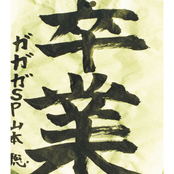 卒業
ガガガSP 山本 聡